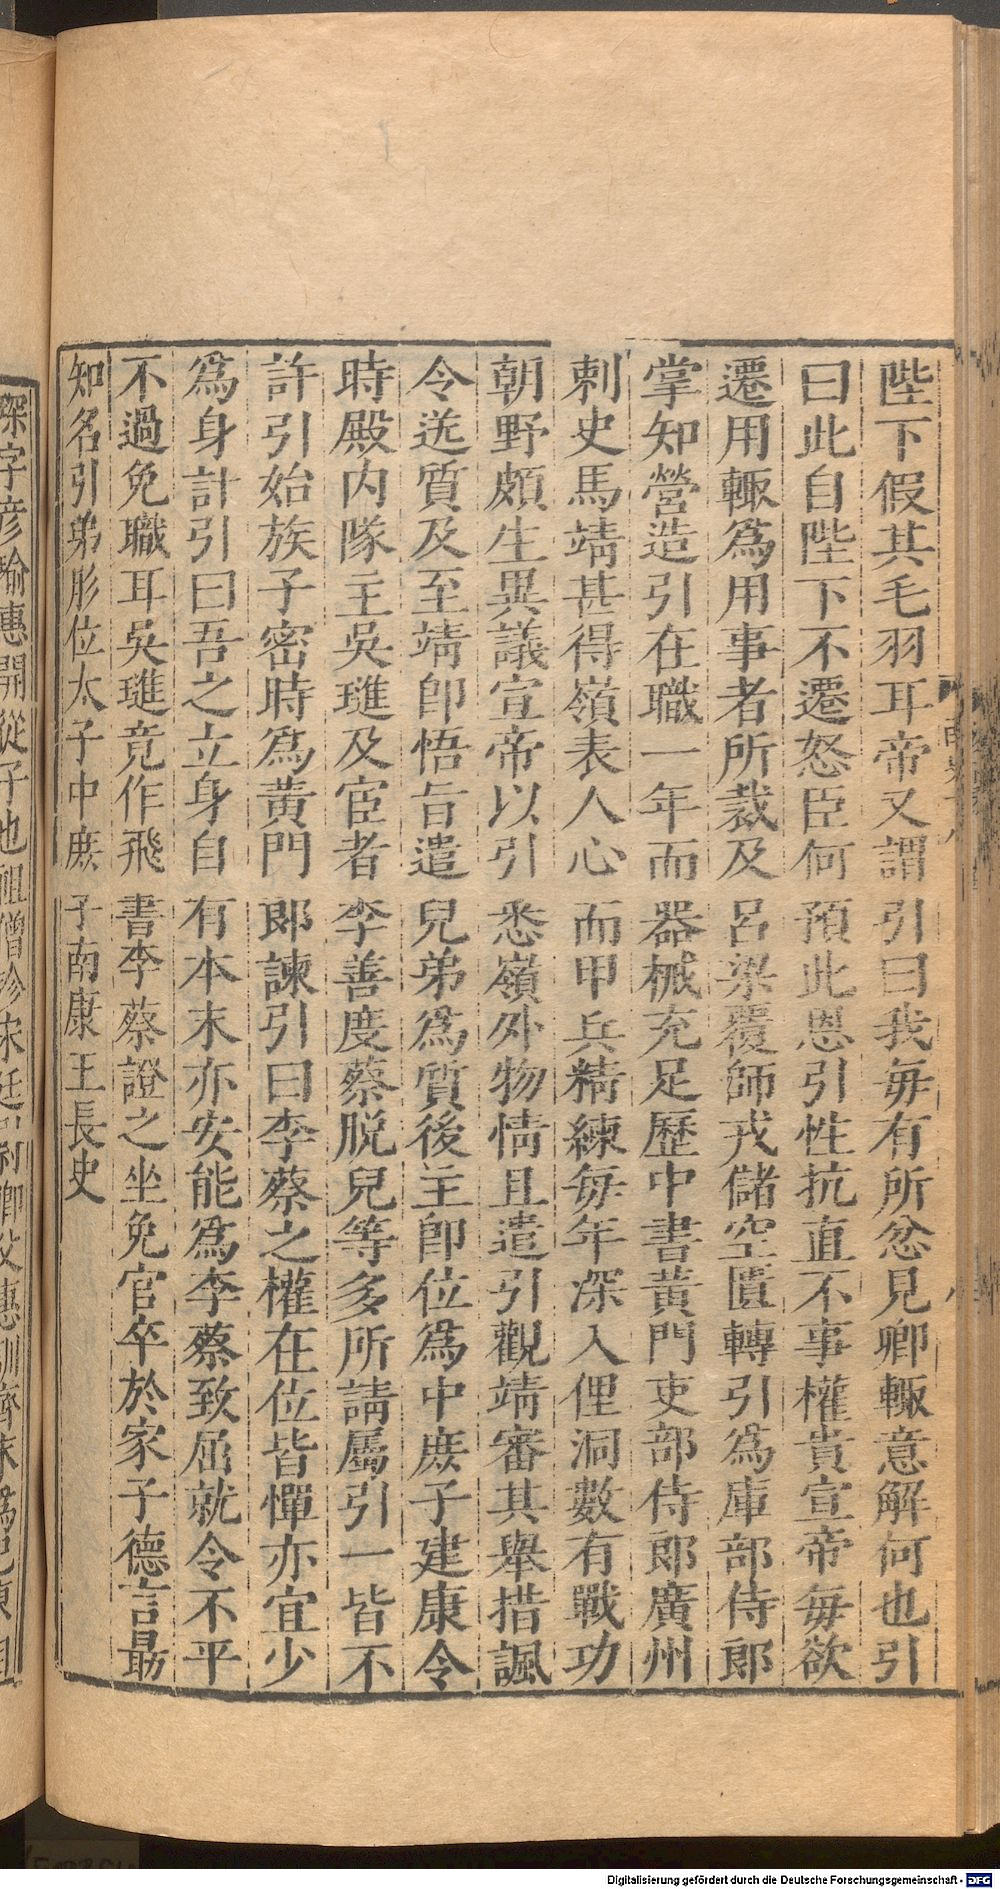 陛下假其毛羽耳帝又謂引曰我毎有所忿見卿輙意解何也引
曰此自陛下不遷怒臣何預此恩引性抗直不事權貴宣帝毎欲
遷用輙爲用事者所裁及呂梁覆師戎儲空匱轉引爲庫部侍郎
掌知營造引在職一年而器械充足歷中書黃門吏部侍郎廣州
刺史馬靖甚得嶺表人心而甲兵精練毎年深入俚洞數有戰功
朝野頗生異議宣帝以引悉嶺外物情且遣引觀靖審其舉措諷
令送質及至靖卽悟旨遣兒弟爲質後主卽位爲中庶子建康令
時殿内隊主吳璡及宦者李善度蔡脫兒等多所請屬引一皆不
許引始族子密時爲黃門郎諫引曰李蔡之權在位皆憚亦宜少
爲身計引曰吾之立身自有本末亦安能爲李蔡致屈就令不平
不過免職耳吳璡竟作飛書李蔡證之坐免官卒於家子德言最
知名引弟彤位太子中庶子南康王長史
琛字彦瑜惠開從子也祖僧珍宋廷尉卿父惠訓齊末爲巴東相
Digitalisierung gefördert durch die Deutsche Forschungsgemeinschaft - DFG